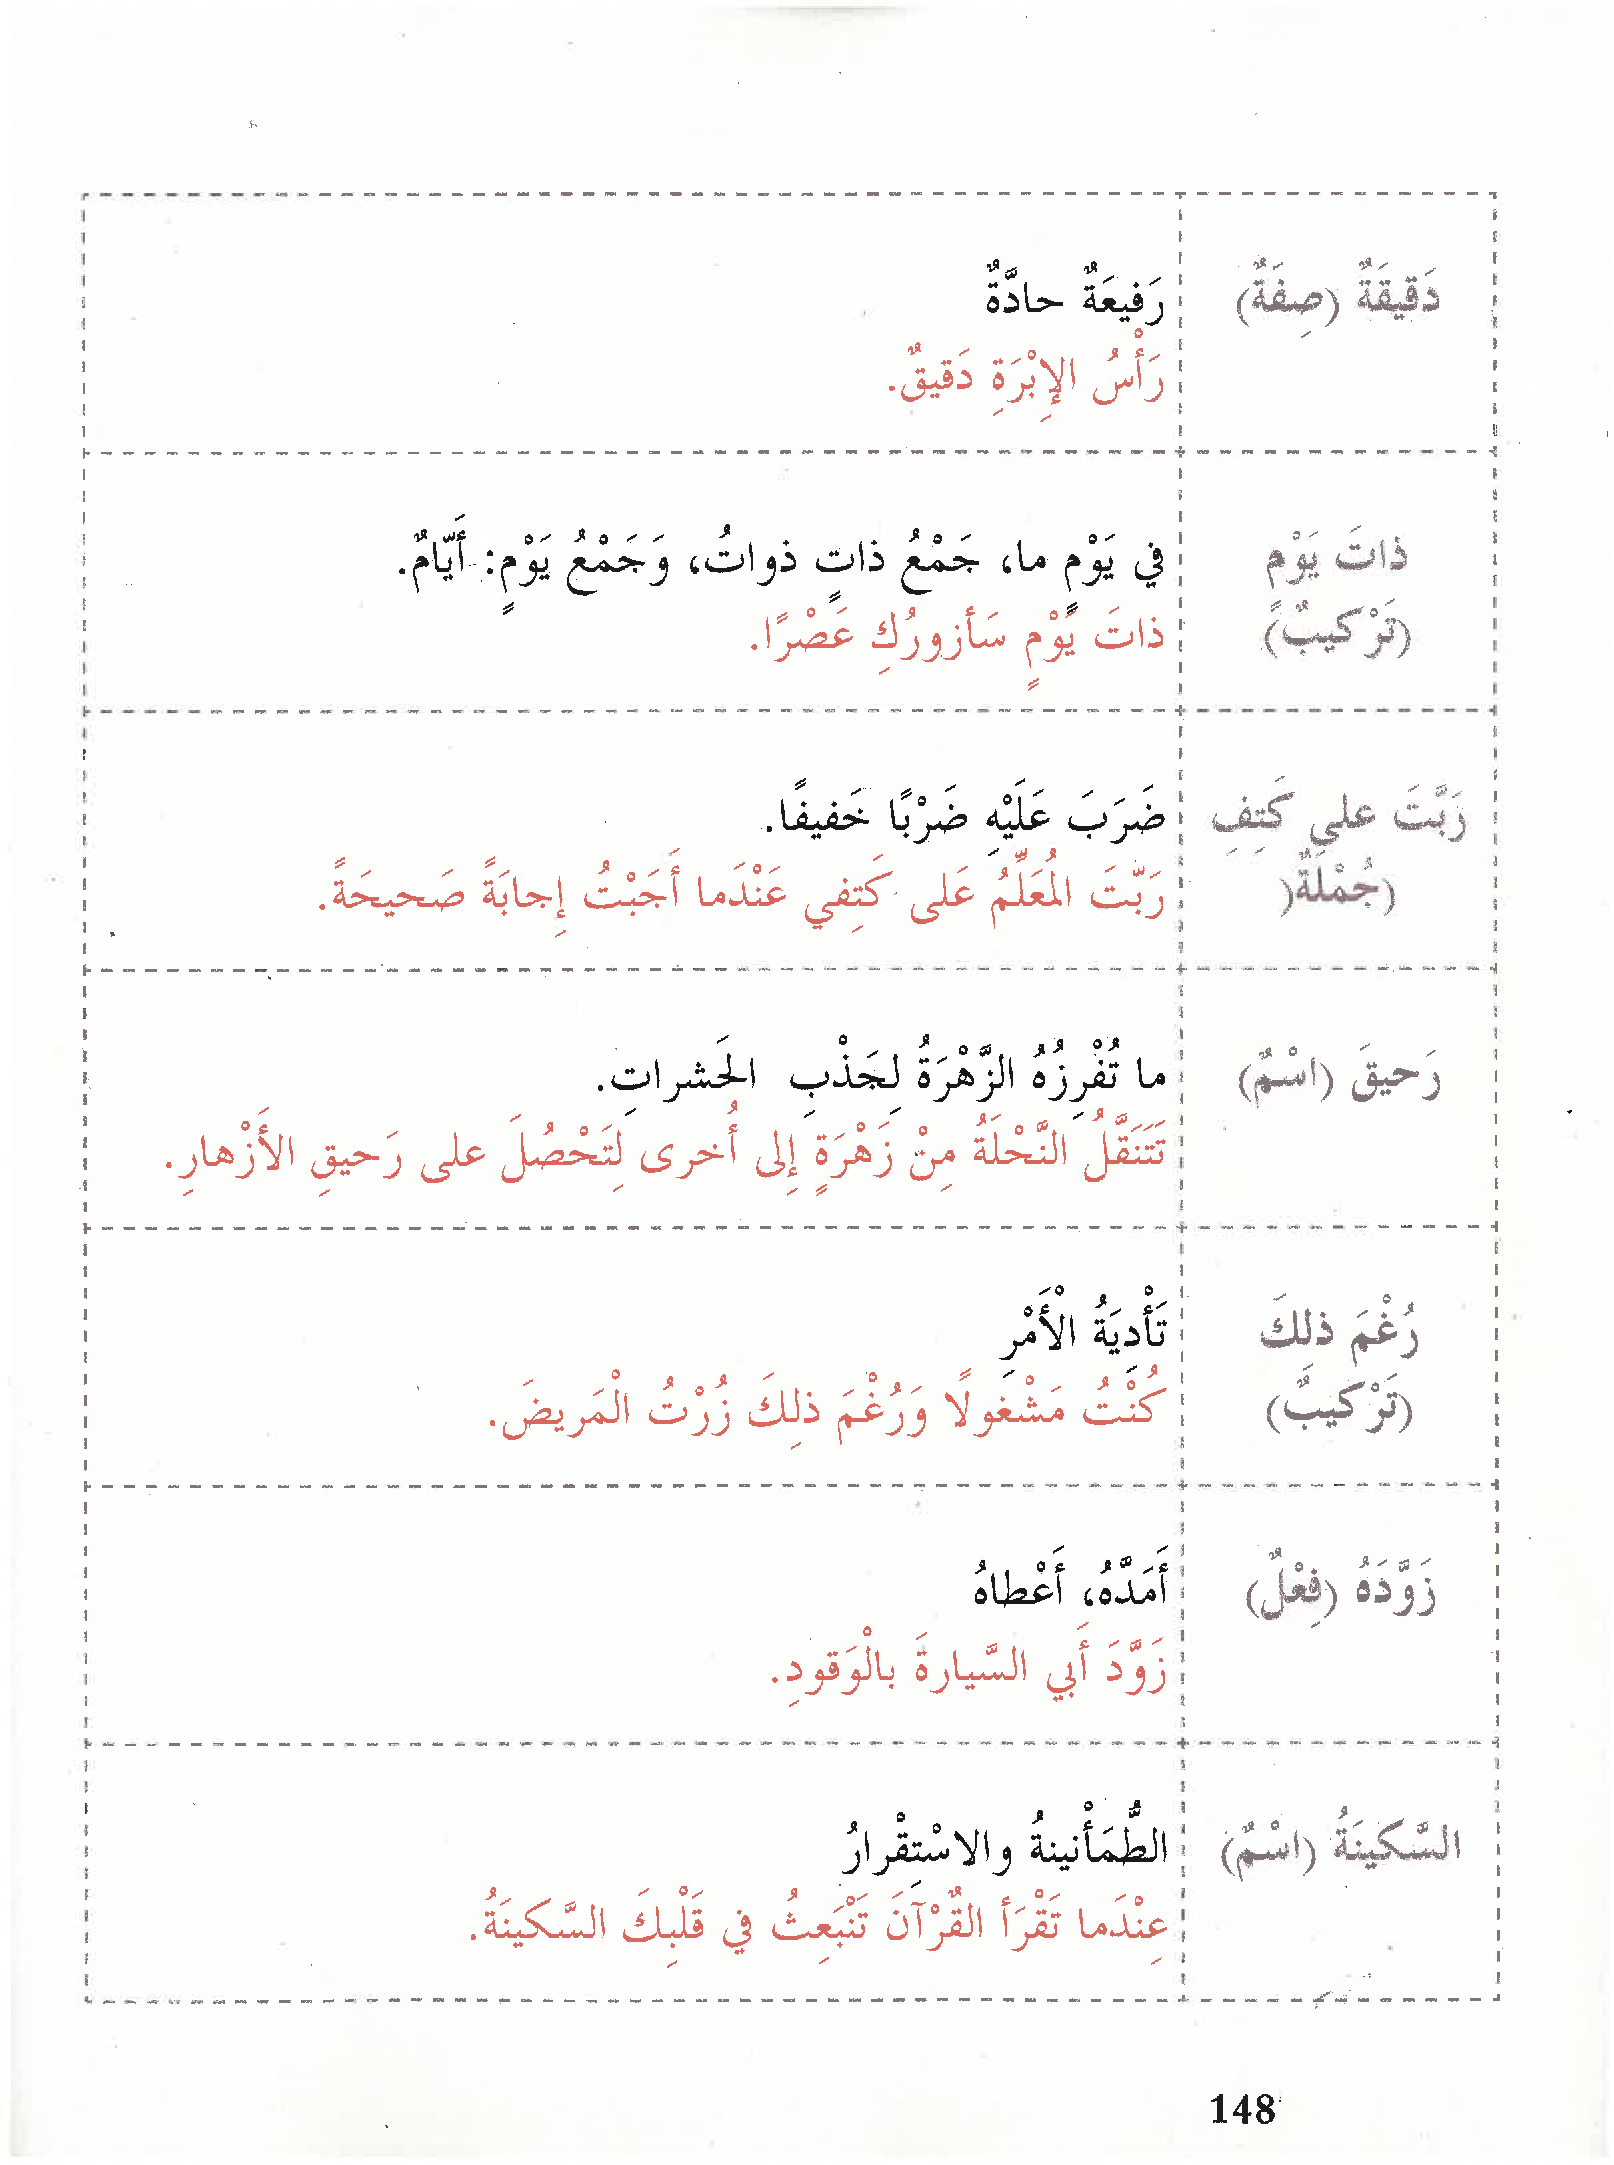 دَقيقَةٌ (صِفَةٌ)
رَفيعَةٌ حادَّةٌ
رَأْسُ الإِبْرَةِ دَقيقٌ.
ذاتَ يَوْم
(تَرْكيبٌ)
في يَوْمٍ ما، جَمْعُ ذاتٍ ذواتُ، وَجَمْعُ يَوْمٍ: أَيّامٌ.
ذاتَ يَوْمٍ سَأَزورُكِ عَصْرًا.
رَبَّتَ على كَتِفِ
(جُمْلَةٌ(
ضَرَبَ عَلَيْهِ ضَرْبًا خَفيفًا.
رَبَّتَ المُعَلِّمُ عَلى كَتِفي عَنْدَما أَجَبْتُ إِجابَةً صَحيحَةً.
رَحيقَ (اسْمٌ)
ما تُفْرِزُهُ الزَّهْرَةُ لِجَذْبِ الحَشراتِ.
تَتَنَقَّلُ النَّحْلَةُ مِنْ زَهْرَةٍ إِلى أُخرى لِتَحْصُلَ على رَحيقِ الأَزْهارِ.
رُغْمَ ذلكَ
(تَرْكيبٌ)
تَأْدِيَةُ الْأَمْرِ
كُنْتُ مَشْغولًا وَرُغْمَ ذلِكَ زُرْتُ الْمَريضَ.
زَوَّدَهُ (فِعْلٌ)
أَمَدَّهُ، أَعْطاهُ
زَوَّدَ أَبي السَّيارةَ بالْوَقودِ.
السَّكينَةُ (اسْمٌ)
الطُّمَأْنينةُ والاسْتِقْرارُ
عِنْدَما تَقْرَأ القُرْآنَ تَنْبَعِثُ في قَلْبِكَ السَّكينَةُ.
148